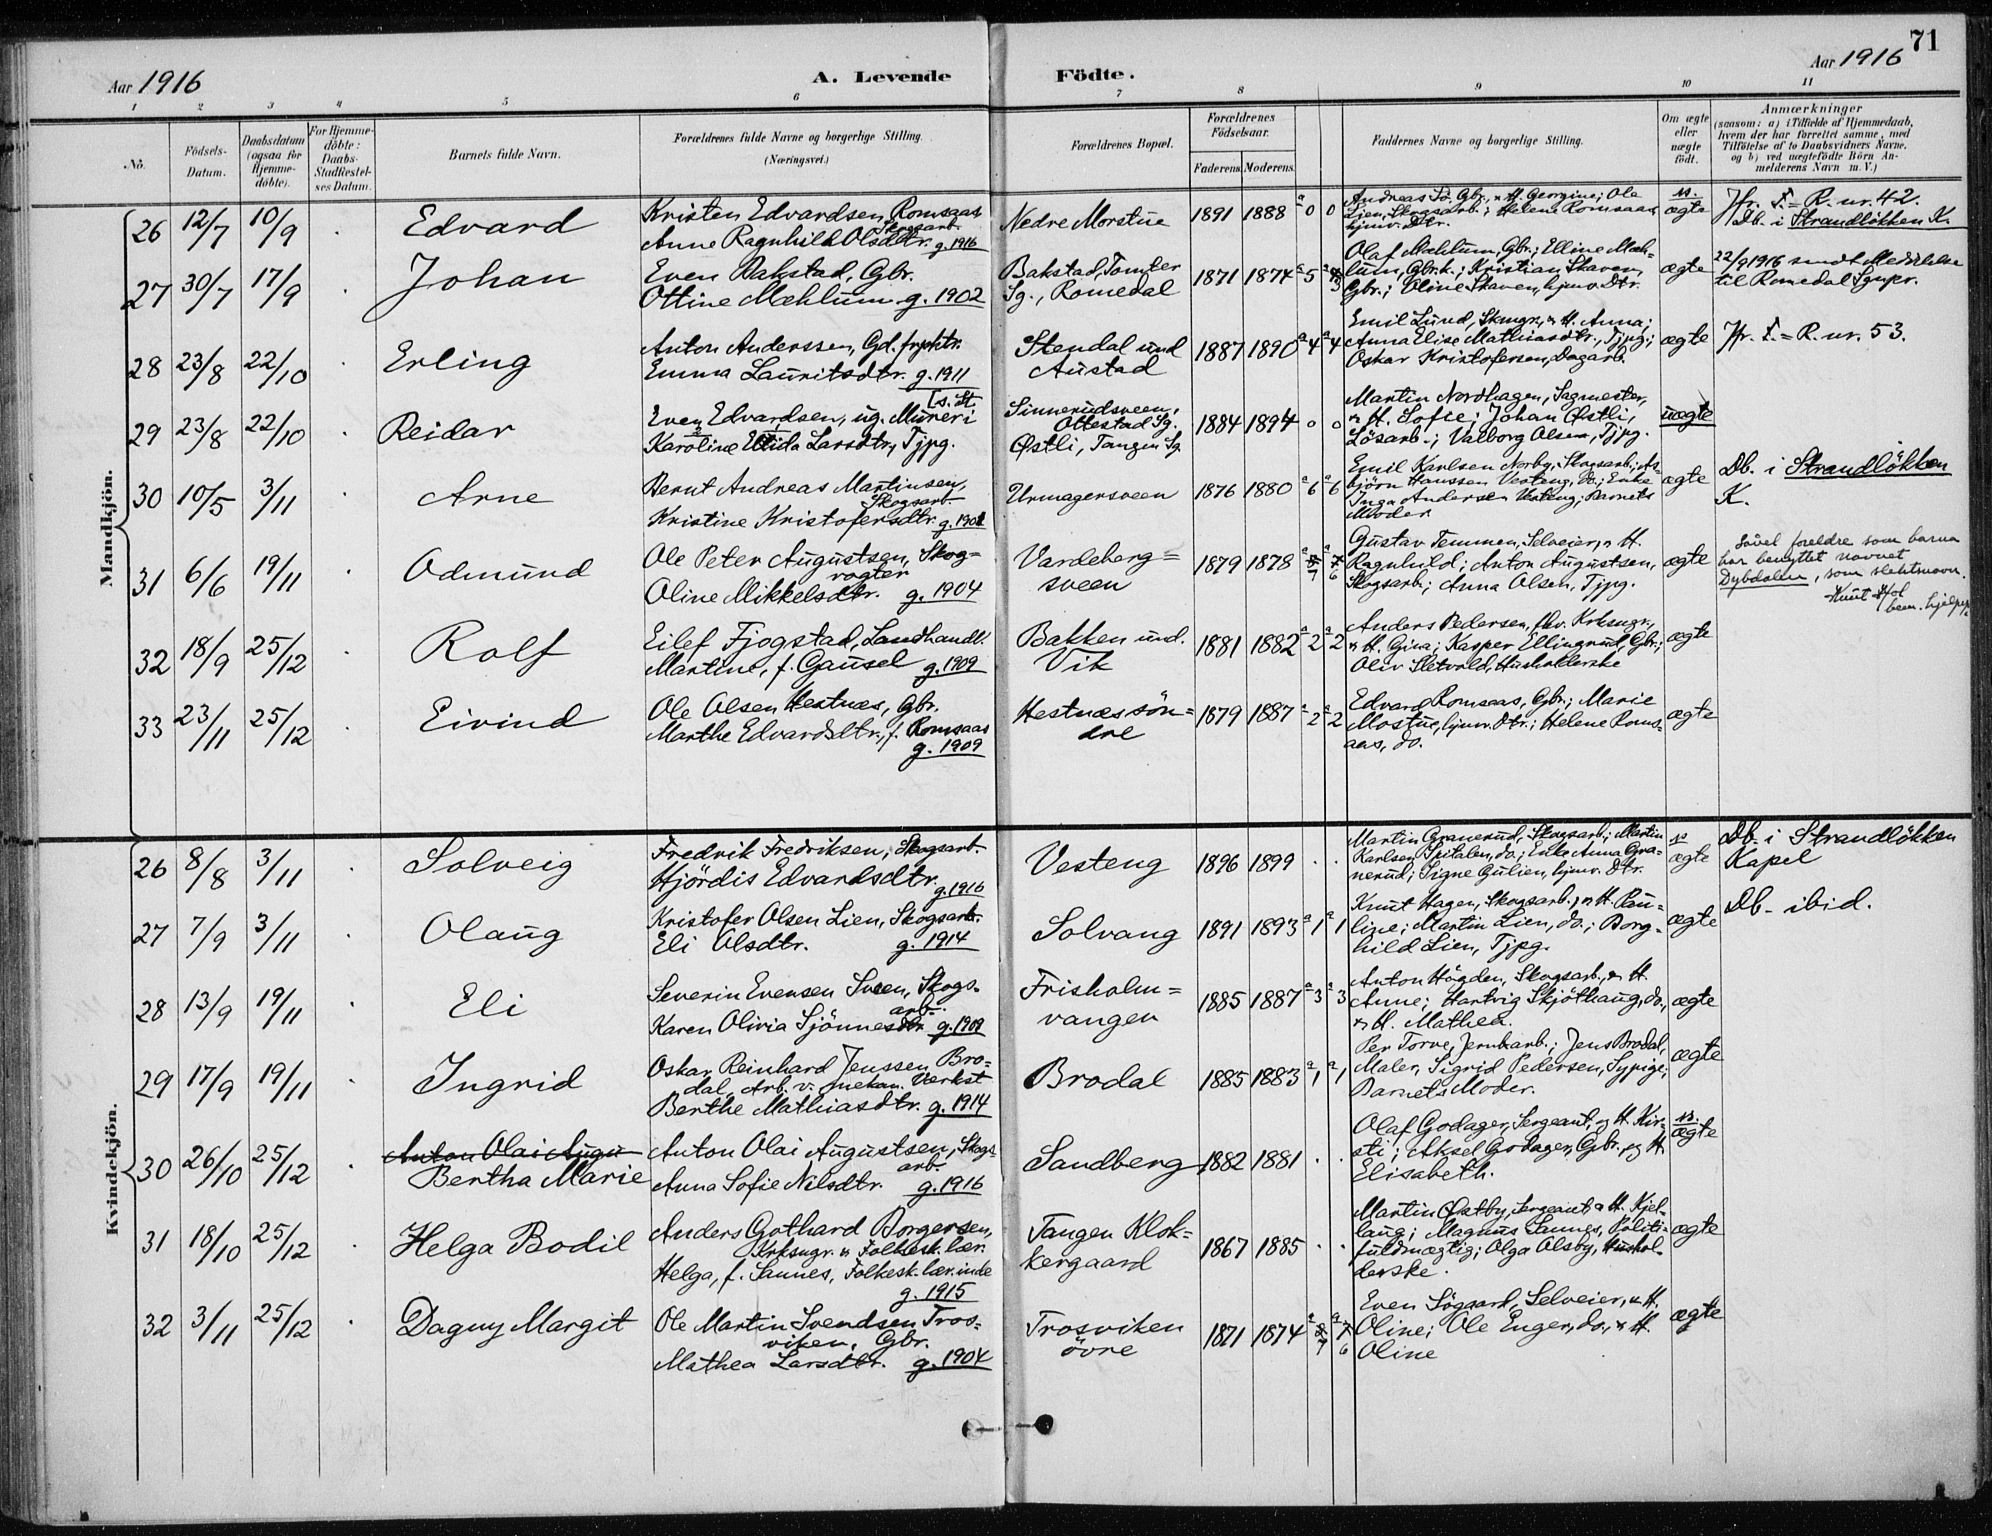 71
Aar 1916
A. Levende
Födte.
Aar 1916
1 2 3 4 5 6 7 8 9 10 11
No.
Födsels-
Datum.
Daabsdatum
(ogsaa for
Hjemme-
döbte).
For Hjemme-
döbte:
Daabs-
Stadfæstel-
ses Datum.
Barnets fulde Navn.
Forældrenes fulde Navne og borgerlige Stilling.
(Næringsvei.)
Forældrenes Bopæl.
Forældrenes
Födselsaar.
Faderens. Moderens.
Faddernes Navne og borgerlige Stilling.
Om ægte
eller
uægte
födt.
Anmærkninger
(saasom: a) i Tilfælde af Hjemmedaab,
hvem der har forrettet samme, med
Tilföielse af to Daabsvidners Navne,
og b) ved uægtefödte Börn An-
melderens Navn m. V.)
Mandkjön.
26 12/7 10/9 Edvard
Kristen Edvardsen Romsaas
Skogsarb.
Anne Ragnhild Olsdtr. g. 1916
Nedre Morstue
1891 1888 0 0
Andreas Sö, Gbr., & H. Georgine; Ole
Lien, Skogsarb.; Helene Romsaas,
hjmv. Dtr.
ægte
Jfr. F. = R. nr. 42.
Db. i Strandlökken K.
27 30/7 17/9 Johan
Even Bakstad, Gbr.
Ottine Mæhlum g. 1902
Bakstad, Tomter
Sg., Romedal
1871 1874 5
Olaf Mæhlum, Gbr.; Elline Mæh-
lum, Gbr.k.; Kristian Skaven,
Gbr.; Oline Skaven, hjmv. Dtr.
ægte
22/9 1916 sendt Meddelelse
til Romedal Sgnpr.
28 23/8 22/10 Erling
Anton Anderssen, Gd. frpktr.
Emma Lauritsdtr. g. 1911
Stendal und
Austad
1887 1890 4 4
Emil Lund, Skmgr., & H. Anna;
Anna Elise Mathiasdtr., Tjpg.;
Oskar Kristofersen, Dagarb.
ægte
Jfr. F. = R. nr. 53.
29 23/8 22/10 Reidar
[s. St.
Even Edvardsen, ug. Murer i
Karoline Elida Larsdtr., Tjpg.
Sinnerudsveen,
Ottestad Sg.
Østli, Tangen Sg.
1884 1894 0 0
Martin Nordhagen, Sagmester,
& H. Sofie; Johan Østli,
Lösarb.; Valborg Olsen, Tjpg.
uægte
30 10/5 3/11 Arne
Bernt Andreas Martinsen,
Skogsarb.
Kristine Kristofersdtr. g. 1901
Urmagersveen
1876 1880 6 6
Emil Karlsen Norby, Skogsarb.; As-
björn Hanssen Vesteng, do.; Enke
Inga Andersen Vesteng; Barnets
Moder
ægte
Db. i Strandlökken
K.
31 6/6 19/11 Odmund
Ole Peter Augustsen, Skog=
vogter
Oline Mikkelsdtr. g. 1904
Vardeberg=
sveen
1879 1878 7 6
Gustav Temmen, Selveier, & H.
Ragnhild; Anton Augustsen,
Skogsarb.; Anna Olsen, Tjpg.
ægte
Såvel foreldre som barna
har benyttet navnet
Dybdalen, som slektsnavn.
Knut
bem. hjelpepr.
32 18/9 25/12 Rolf
Eilef Fjogstad, Landhandl.
Martine, f. Gausel g. 1909
Bakken und.
Vik
1881 1882 2 2
Anders Pedersen, fhv. Krksngr.,
& H. Gina; Kasper Ellingrud, Gbr.;
Oliv Sletvold, Husholderske
ægte
33 23/11 25/12 Eivind
Ole Olsen Hestnæs, Gbr.
Marthe Edvardsdtr., f. Romsaas
g. 1909
Hestnæs sön=
dre
1879 1887 2 2
Edvard Romsaas, Gbr.; Marie
Mostue, hjmv. Dtr.; Helene Roms-
aas, do.
ægte
Kvindekjön.
26 8/8 3/11 Solveig
Fredrik Fredriksen, Skogsarb.
Hjördis Edvardsdtr.
g. 1916
Vesteng
1896 1899
Martin Granerud, Skogsarb.; Martin
Karlsen Spitalen, do.; Enke Anna Gra-
nerud; Signe Gulien, hjmv. Dtr.
ægte
Db. i Strandlökken
Kapel
27 7/9 3/11 Olaug
Kristofer Olsen Lien, Skogsarb.
Eli Olsdtr. g. 1914
Solvang
1891 1893 1 1
Knut Hagen, Skogsarb., & H. Pau-
line; Martin Lien, do.; Borg-
hild Lien, Tjpg.
ægte
Db. ibid.
28 13/9 19/11 Eli
Severin Evensen Sveen, Skogs-
arb.
Karen Olivia Sjönnesdtr. g. 1909
Frisholm=
vangen
1885 1887 3 3
Anton Högden, Skogsarb., & H.
Anne; Hartvig Skjöthaug, do.,
& H. Mathea.
ægte
29 17/9 19/11 Ingrid
Oskar Reinhard Jenssen Bro-
dal, Arb. v. mekan. Værkst.
Berthe Mathiasdtr. g. 1914
Brodal
1885 1883 1 1
Per Torve, Jernbarb.; Jens Brodal,
Maler, Sigrid Pedersen, Sypige;
Barnets Moder.
ægte
30 26/10 25/12 Anton Olai Augu
Bertha Marie
Anton Olai Augustsen, Skogs
arb.
Anna Sofie Nilsdtr. g. 1916
Sandberg
1882 1881
Olaf Godager, Sergeant, og H. Kir-
sti; Aksel Godager, Gbr. og H.
Elisabeth.
ægte
31 18/10 25/12 Helga Bodil
Anders Gothard Borgersen,
Krksngr. & Folkesk.lær.
Helga, f. Sannes, Folkesk.lær.inde
g. 1915
Tangen Klok-
kergaard
1867 1885
Martin Østby, Sergeant & H. Kjel-
laug; Magnus Sannes, Politi-
fuldmægtig; Olga Alsby, Hushol-
derske.
ægte
32 3/11 25/12 Dagny Margit
Ole Martin Svendsen Tros-
viken, Gbr.
Mathea Larsdtr. g. 1904
Trosviken
övre
1871 1874 7 6
Even Sögaard, Selveier, & H.
Oline; Ole Enger, do., & H.
Oline
ægte